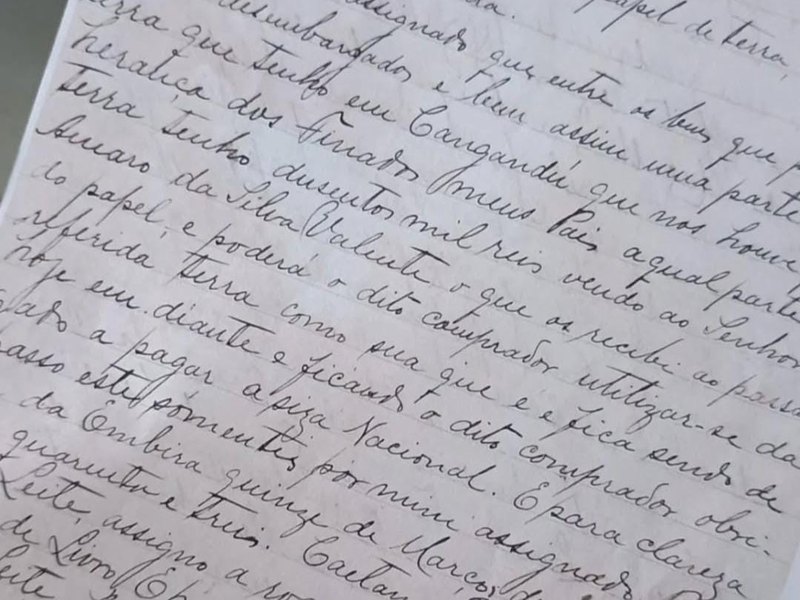 papel de terra,
assignado que entre os bens que p
desembargados e bem assim uma parte
terra que tenho em Cangandú que nos houve p
herança dos Finados meus Pais, a qual parte
terra tenho dusentos mil reis vendo ao Senhor
Amaro da Silva Valente o que os recebi ao passa
do papel, e poderá o dito comprador utilizar-se da
referida terra como sua que é e fica sendo de
hoje em diante e ficando o dito comprador obri-
gado a pagar a siza Nacional. E para clareza
passo este sómente por mim assignado
da Embira quinze de Março d
quarenta e treis. Caetan
Leite, assigno a ro
de Livro
Leite